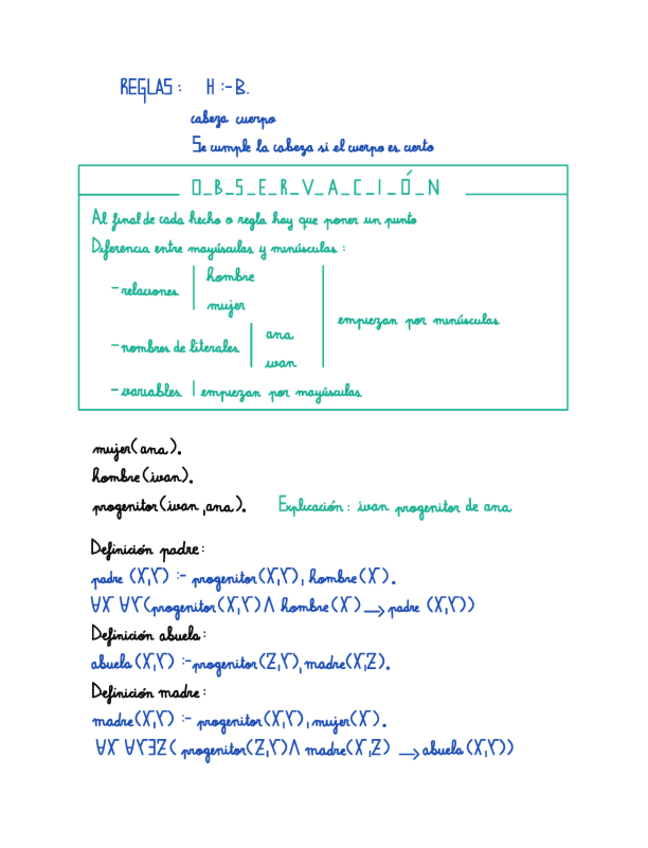 REGLAS: H :- B.
cabeza cuerpo
Se cumple la cabeza si el cuerpo es cierto
O_B_S_E_R_V_A_C_I_Ó_N
Al final de cada hecho o regla hay que poner un punto
Diferencia entre mayúsculas y minúsculas:
- relaciones | hombre
mujer
empiezan por minúsculas
- nombres de literales | ana
ivan
- variables | empiezan por mayúsculas
mujer(ana).
hombre(ivan).
progenitor(ivan,ana). Explicación: ivan progenitor de ana
Definición padre:
padre (X,Y) :- progenitor(X,Y), hombre(X).
∀X ∀Y(progenitor(X,Y) ∧ hombre(X) → padre (X,Y))
Definición abuela:
abuela(X,Y) :- progenitor(Z,Y), madre(X,Z).
Definición madre:
madre(X,Y) :- progenitor(X,Y), mujer(X).
∀X ∀Y∃Z( progenitor(Z,Y) ∧ madre(X,Z) → abuela(X,Y))